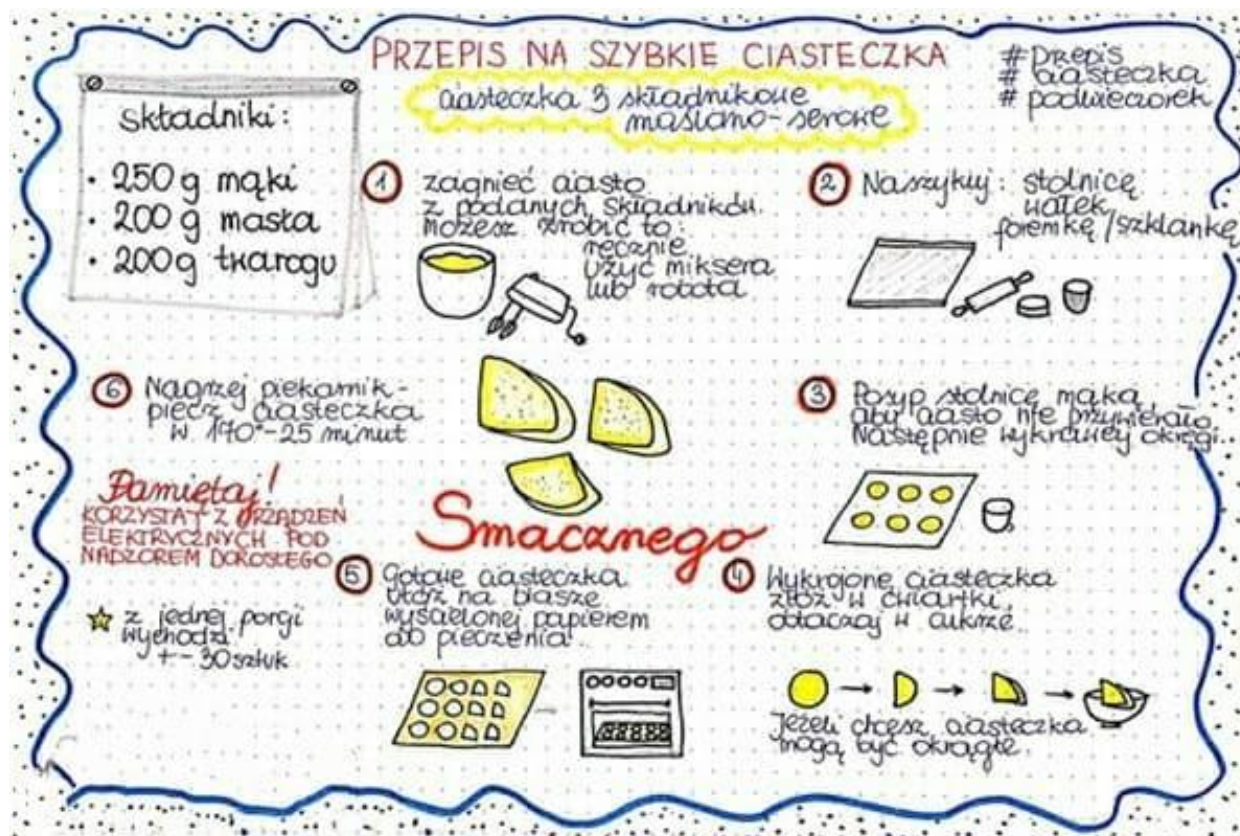 PRZEPIS NA SZYBKIE CIASTECZKA
ciasteczka 3 składnikowe
maślano-serowe
# przepis
# ciasteczka
# podwieczorek
składniki:
• 250 g mąki
• 200 g masła
• 200 g twarogu
1 zagnieć ciasto
z podanych składników.
możesz zrobić to:
ręcznie
użyć miksera
lub robota
2 Naszykuj: stolnicę
wałek
foremkę/szklankę
3 Posyp stolnicę mąką,
aby ciasto nie przywierało.
Następnie wykrawaj okręgi.
4 Wykrojone ciasteczka
złóż w ćwiartki,
obtaczaj w cukrze.
Jeżeli chcesz, ciasteczka
mogą być okrągłe.
5 Gotowe ciasteczka
włóż na blaszę
wyścielonej papierem
do pieczenia
6 Nagrzej piekarnik -
piecz ciasteczka
w 170°-25 minut
Pamiętaj!
KORZYSTAJ Z URZĄDZEŃ
ELEKTRYCZNYCH POD
NADZOREM DOROSŁEGO
z jednej porcji
wychodzi
+- 30 sztuk
Smacznego